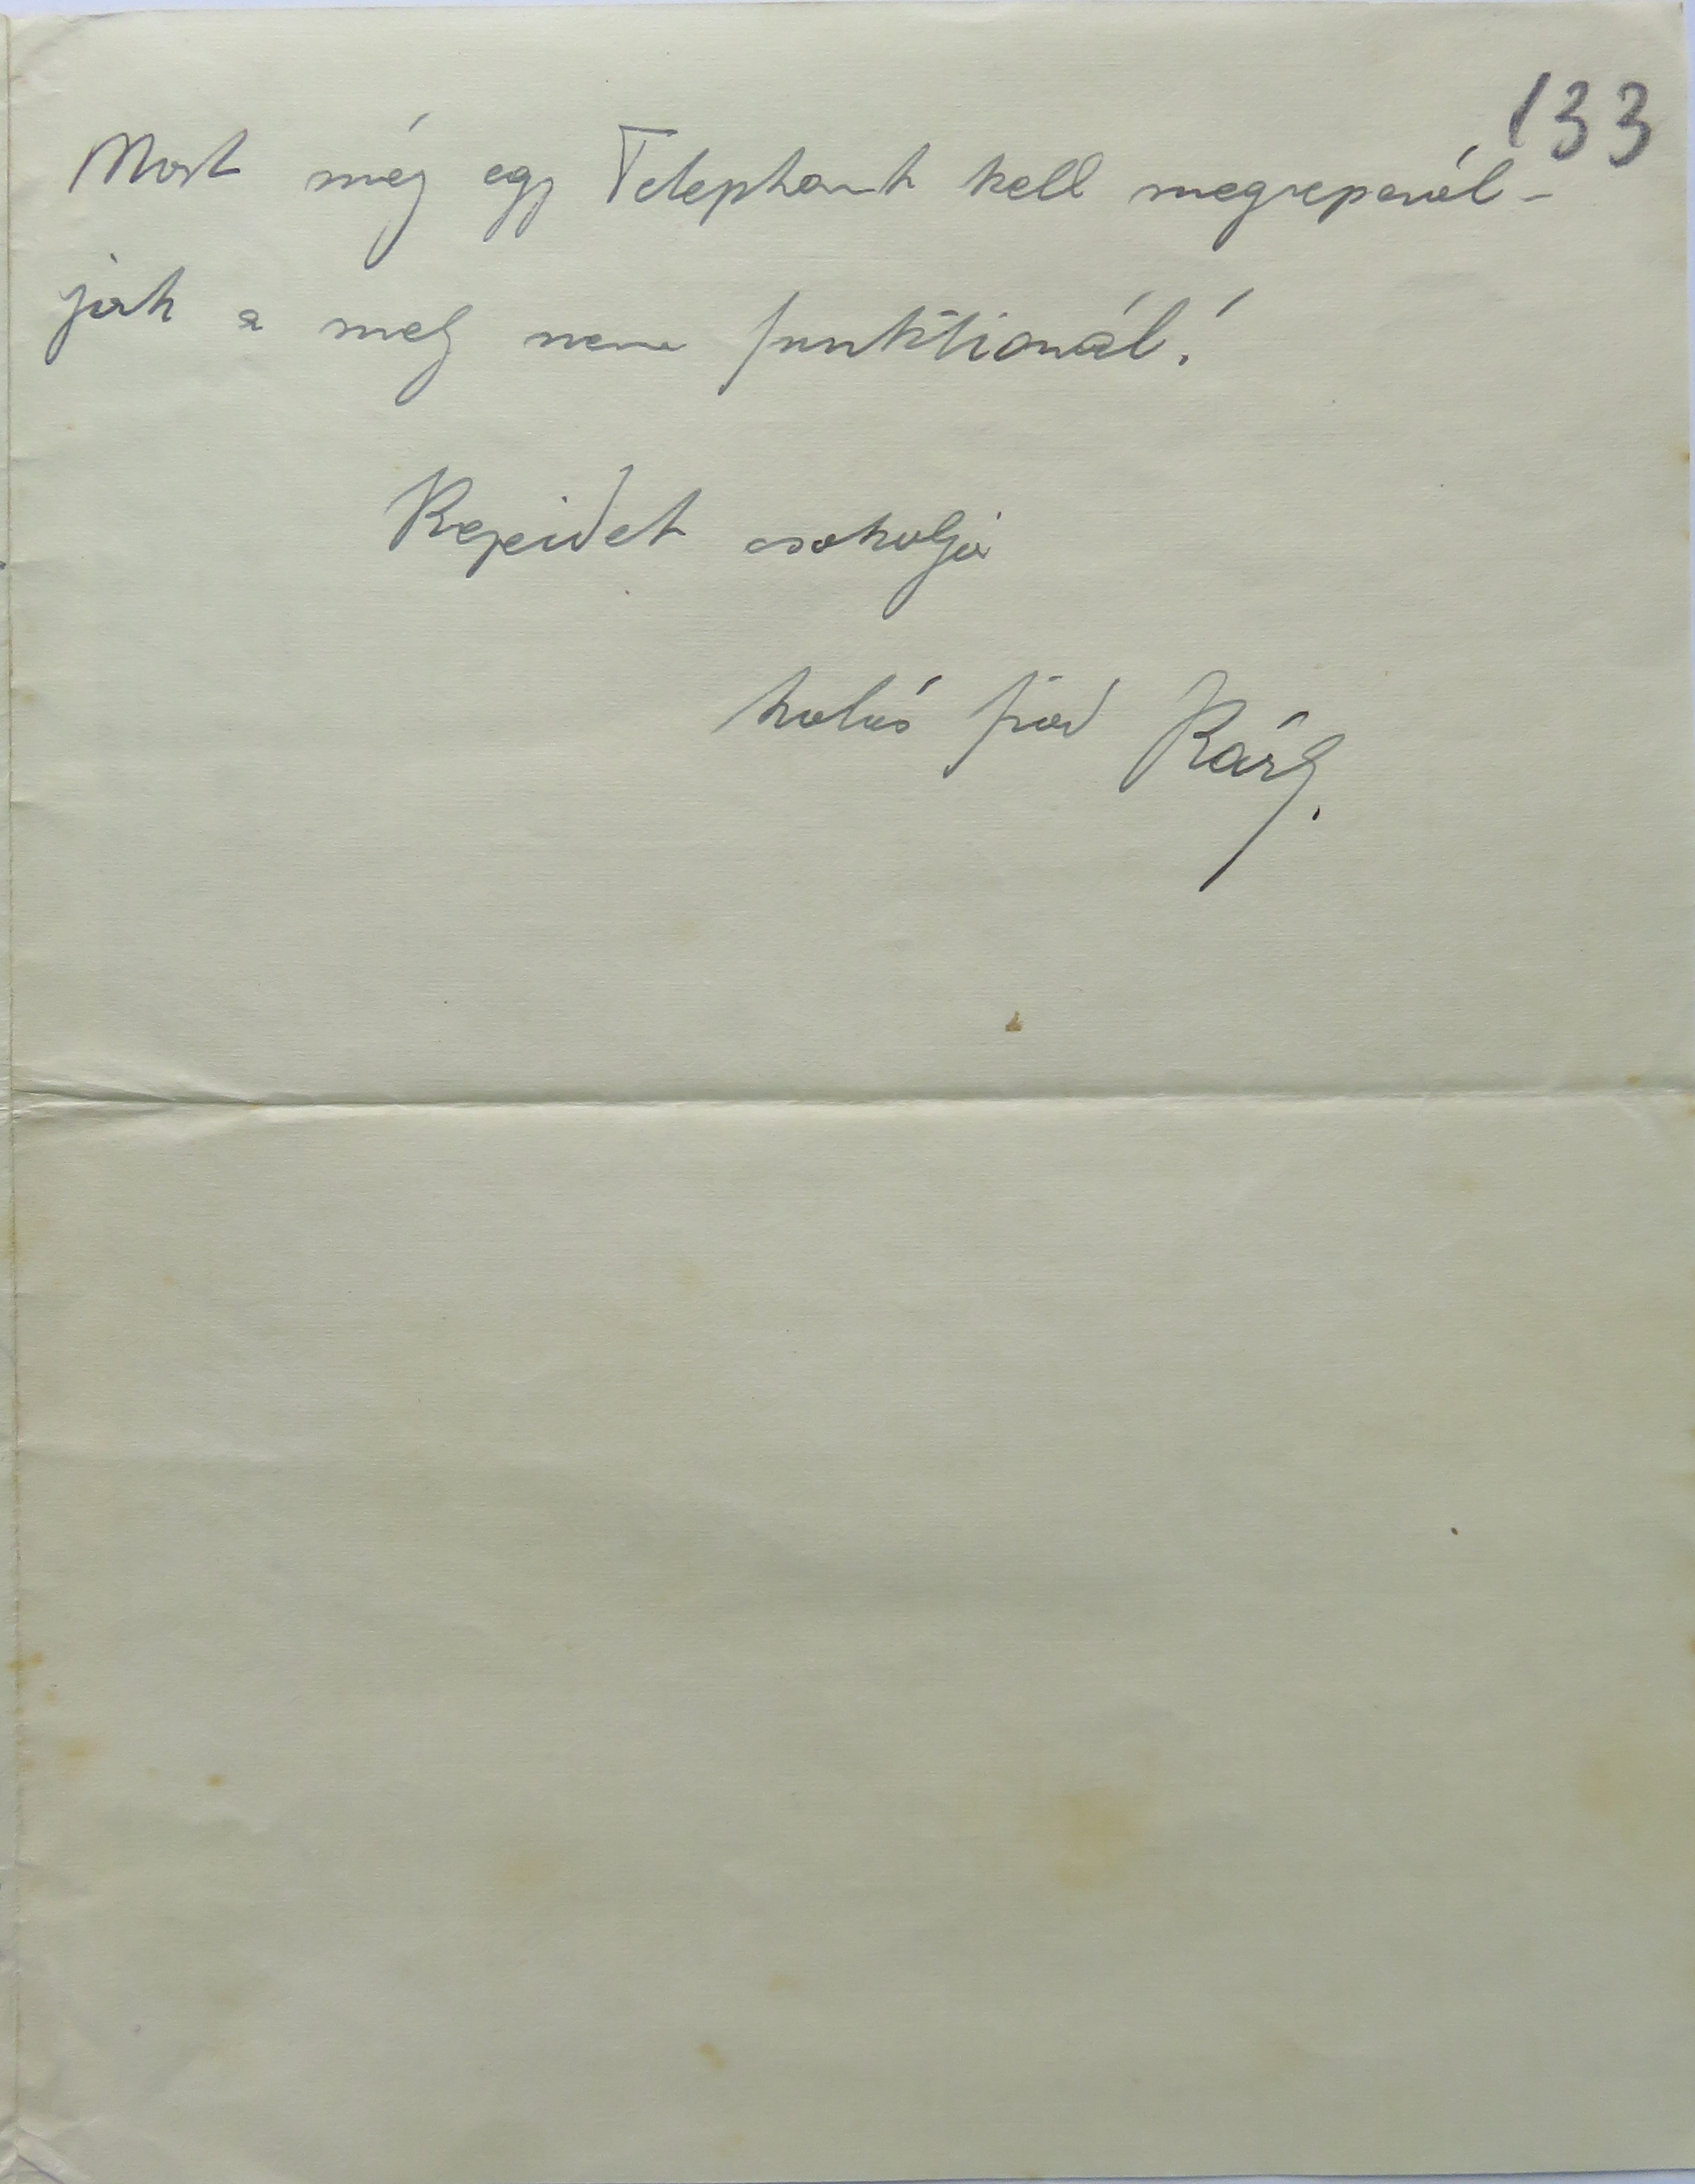 133
Most még egy Telephont kell megreparál-
juk a mely nem funktionál!
Kezeidet csokolja
hálás fiad Károly.